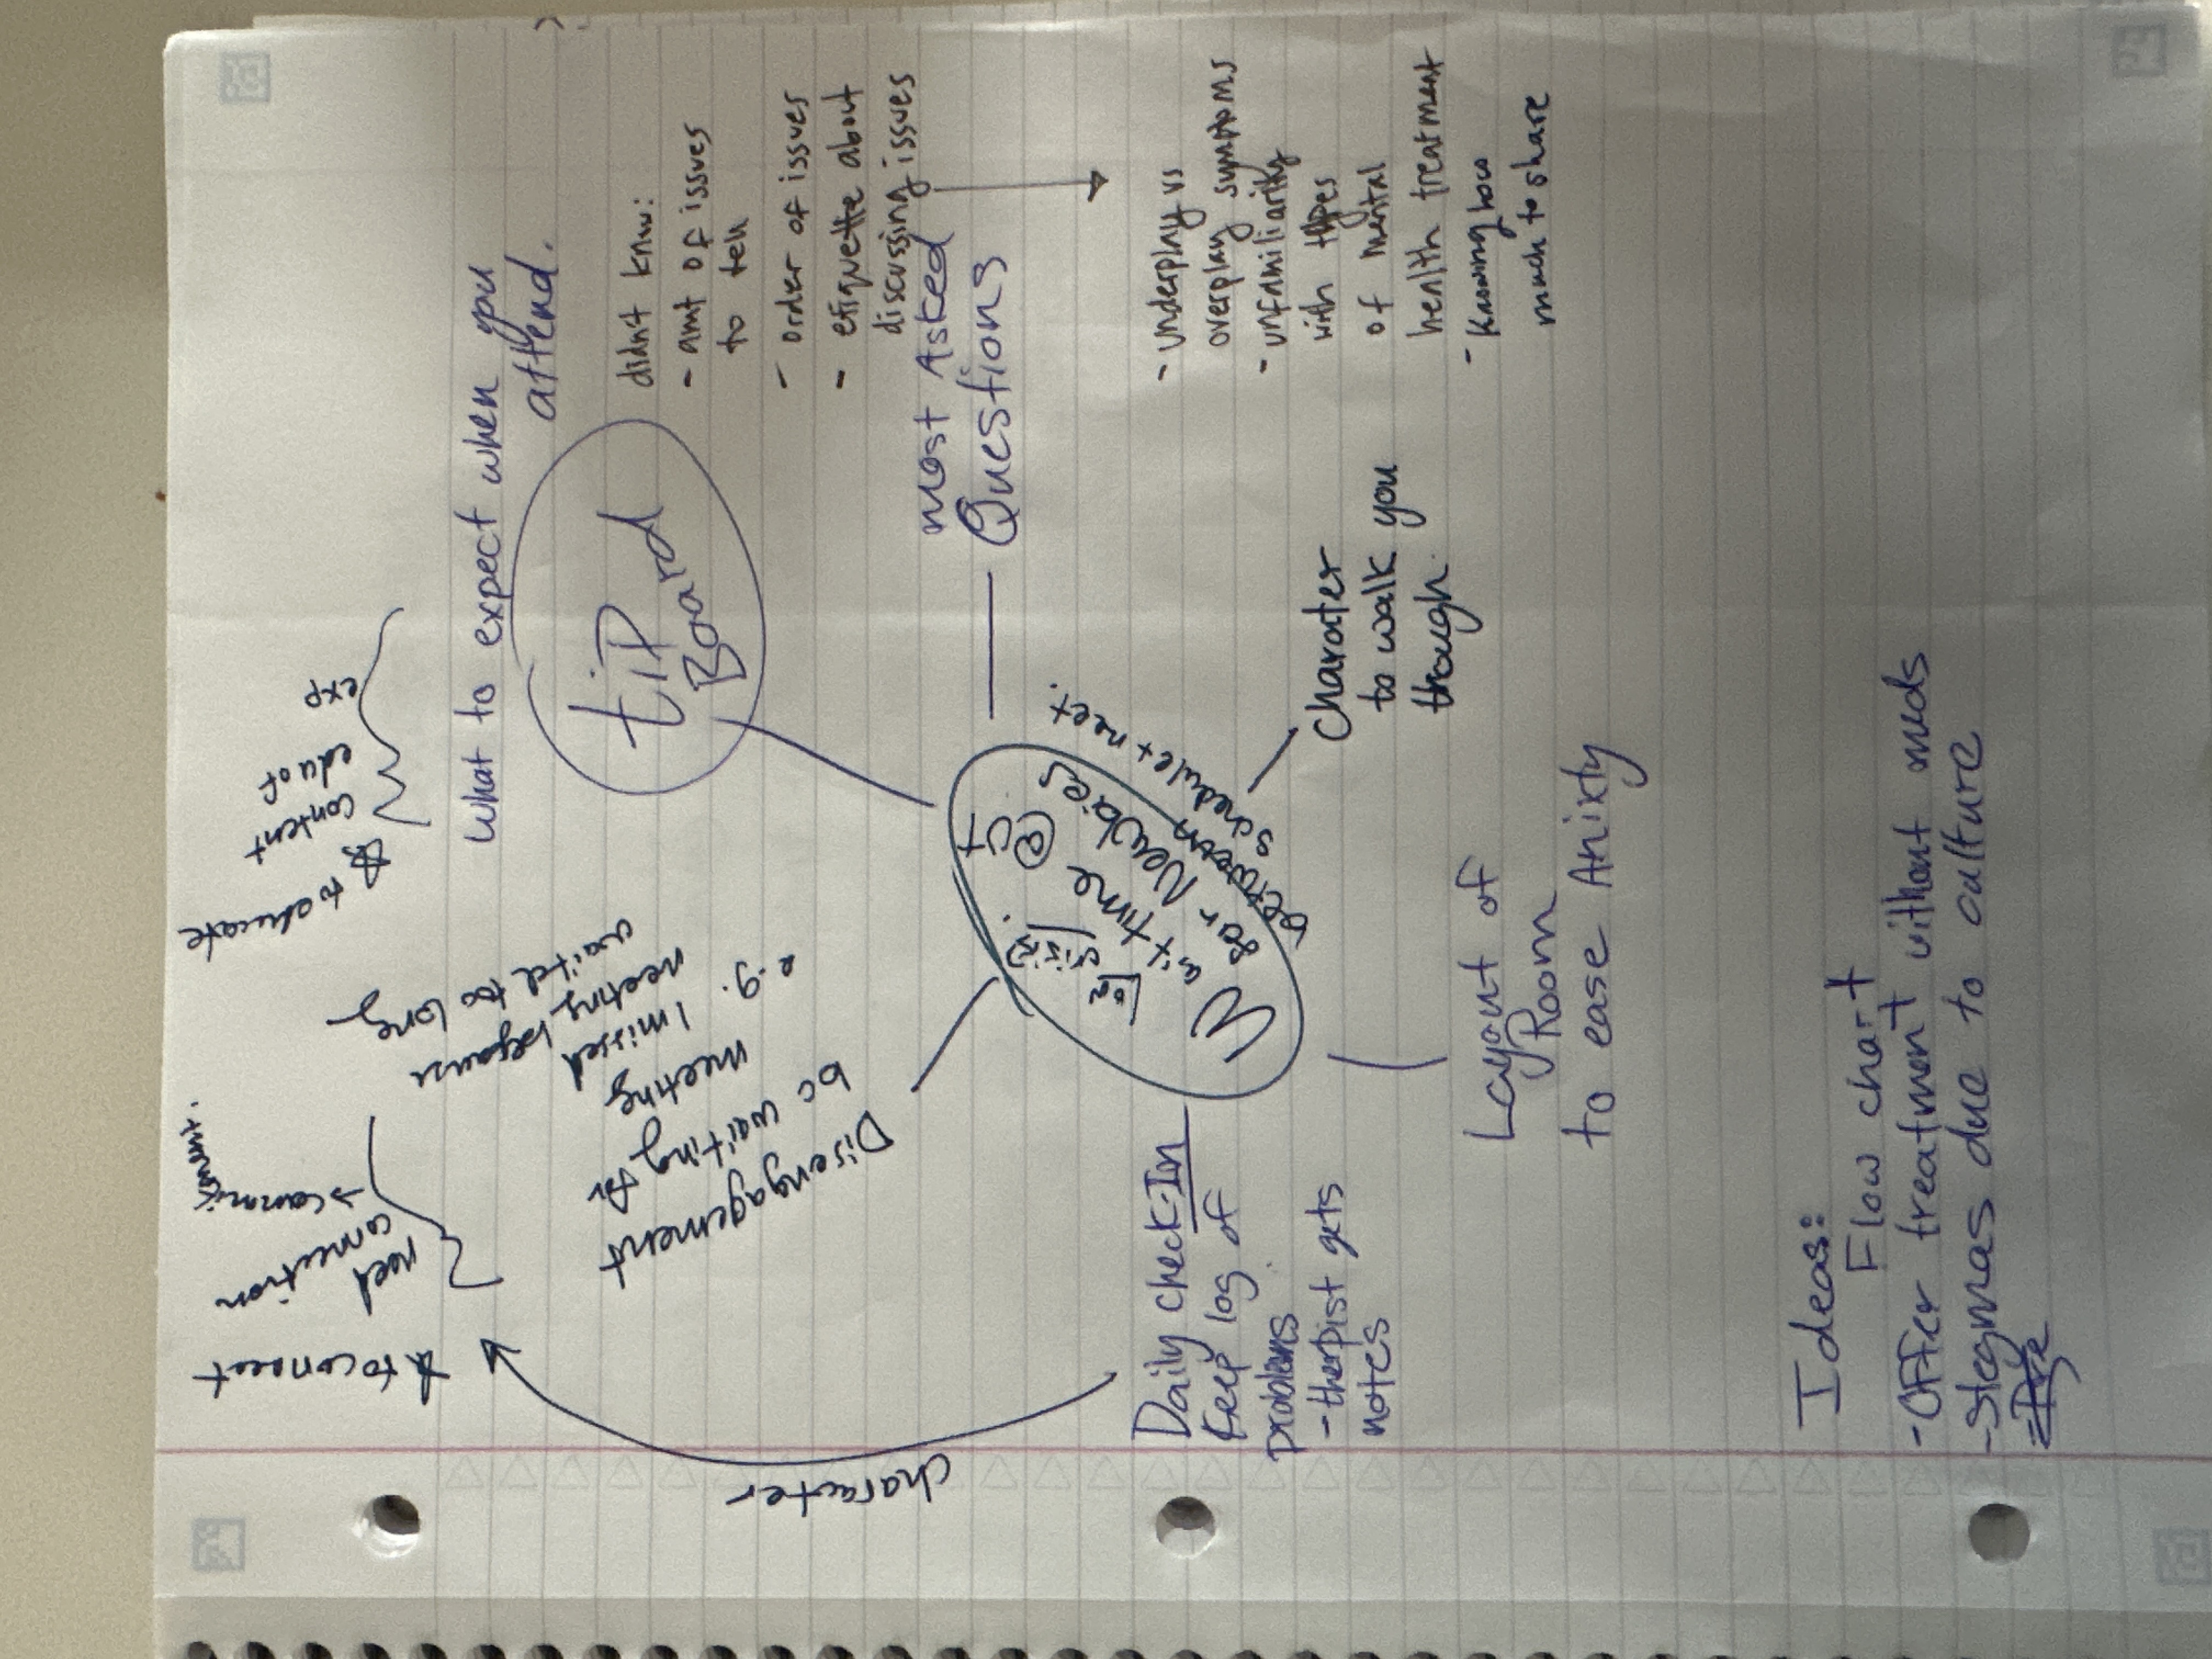 what to expect when you
attend.
tiP
Board
didnt know:
- amt of issues
to tell
- order of issues
- etiquette about
discussing issues
most Asked
Questions
- underplay vs
overplay symptoms
- unfamiliarity
with types
of mental
health treatment
- knowing how
much to share
Charater
to walk you
though.
Wait time @UT
for Newbies
between
schedule + meet.
Low
crisis
Layout of
Room
to ease Anixty
Daily check-In
Keep log of
problems
- therpist gets
notes
character
to connect
need
connection
Disengagement
bc waiting for
meeting
e.g. I missed
meeting because
waited too long
to educate
content
edu of
exp
Ideas:
Flow chart
- Offer treatment without meds
- stegmas due to culture